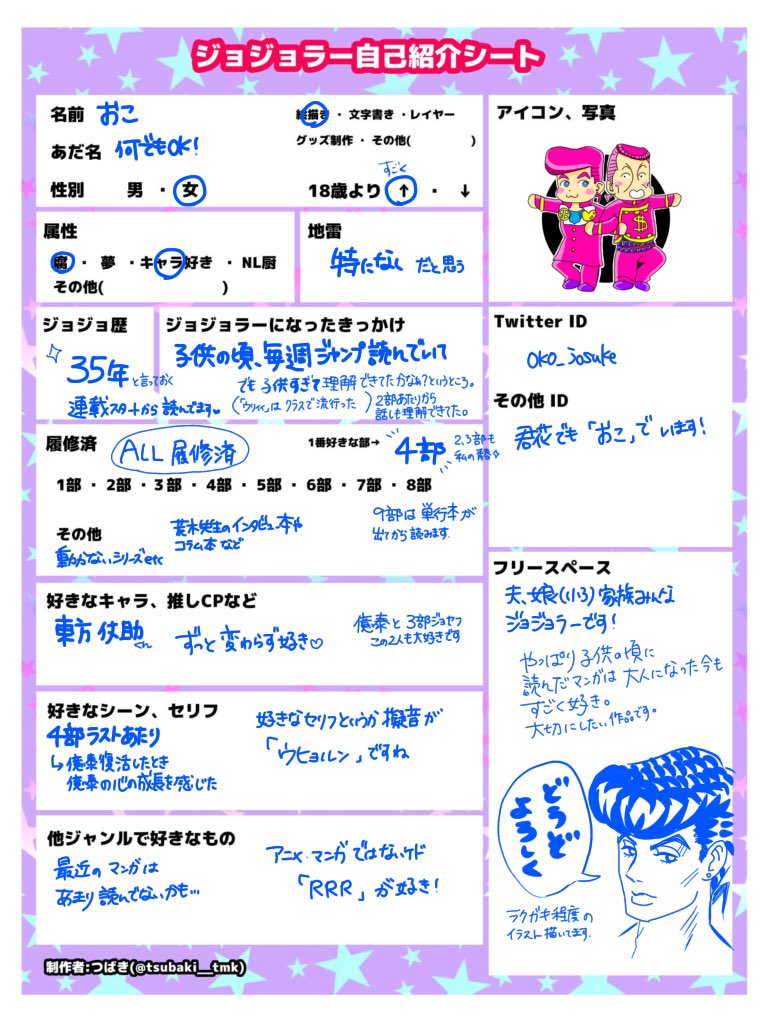 ジョジョラー自己紹介シート
名前 おこ
絵描き ・ 文字書き ・レイヤー
グッズ制作 ・ その他( )
あだ名 何でもOK!
性別 男 ・ 女
すごく
18歳より ↑ ・ ↓
アイコン、写真
$
属性
腐 ・ 夢 ・キャラ好き ・ NL厨
その他( )
地雷
特になし だと思う
ジョジョ歴
35年 と言っておく
連載スタートから読んでます
ジョジョラーになったきっかけ
子供の頃、毎週ジャンプ読んでいて
でも子供すぎて理解できてたかなぁ?というところ。
(「ウリィィ」はクラスで流行った)
2部あたりから
話しも理解できてた。
Twitter ID
oko_josuke
その他 ID
でも「おこ」でいます!
履修済
ALL 履修済
1番好きな部→ 4部
2,3部も
私の青春
1部 ・ 2部 ・ 3部 ・ 4部 ・ 5部 ・ 6部 ・ 7部 ・ 8部
その他
動かないシリーズetc
荒木先生のインタビュー本や
コラム本など
9部は単行本が
出てから読みます.
好きなキャラ、推しCPなど
東方仗助くん
ずっと変わらず好き♡
億泰と3部ジョセフ
この2人も大好きです
好きなシーン、セリフ
4部ラストあたり
↳億泰復活したとき
億泰の心の成長を感じた
好きなセリフというか擬音が
「ウヒョルン」ですね
他ジャンルで好きなもの
最近のマンガは
あまり読んでないかも…
アニメ・マンガではないケド
「RRR」が好き!
フリースペース
夫、娘(いろ)家族みんな
ジョジョラーです!
やっぱり子供の頃に
読んだマンガは大人になった今も
すごく好き。
大切にしたい作品です。
どうぞ
よろしく
ラクガキ程度の
イラスト描いてます.
制作者:つばき(@tsubaki__tmk)